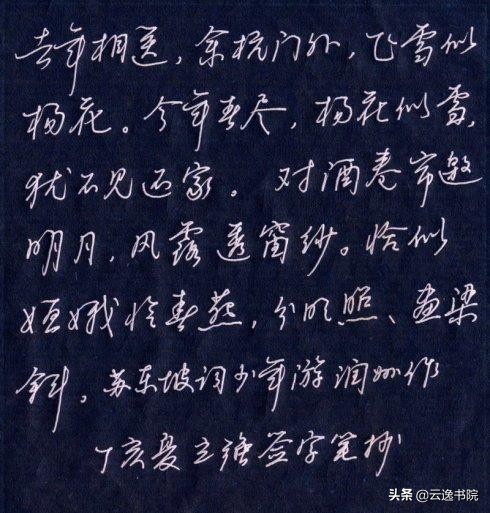 去年相送，余杭门外，飞雪似
杨花。今年春尽，杨花似雪，
犹不见还家。 对酒卷帘邀
明月，风露透窗纱。恰似
姮娥怜双燕，分明照、画梁
斜。苏东坡词少年游润州作
丁亥夏立强签字笔抄
头条 @云逸书院